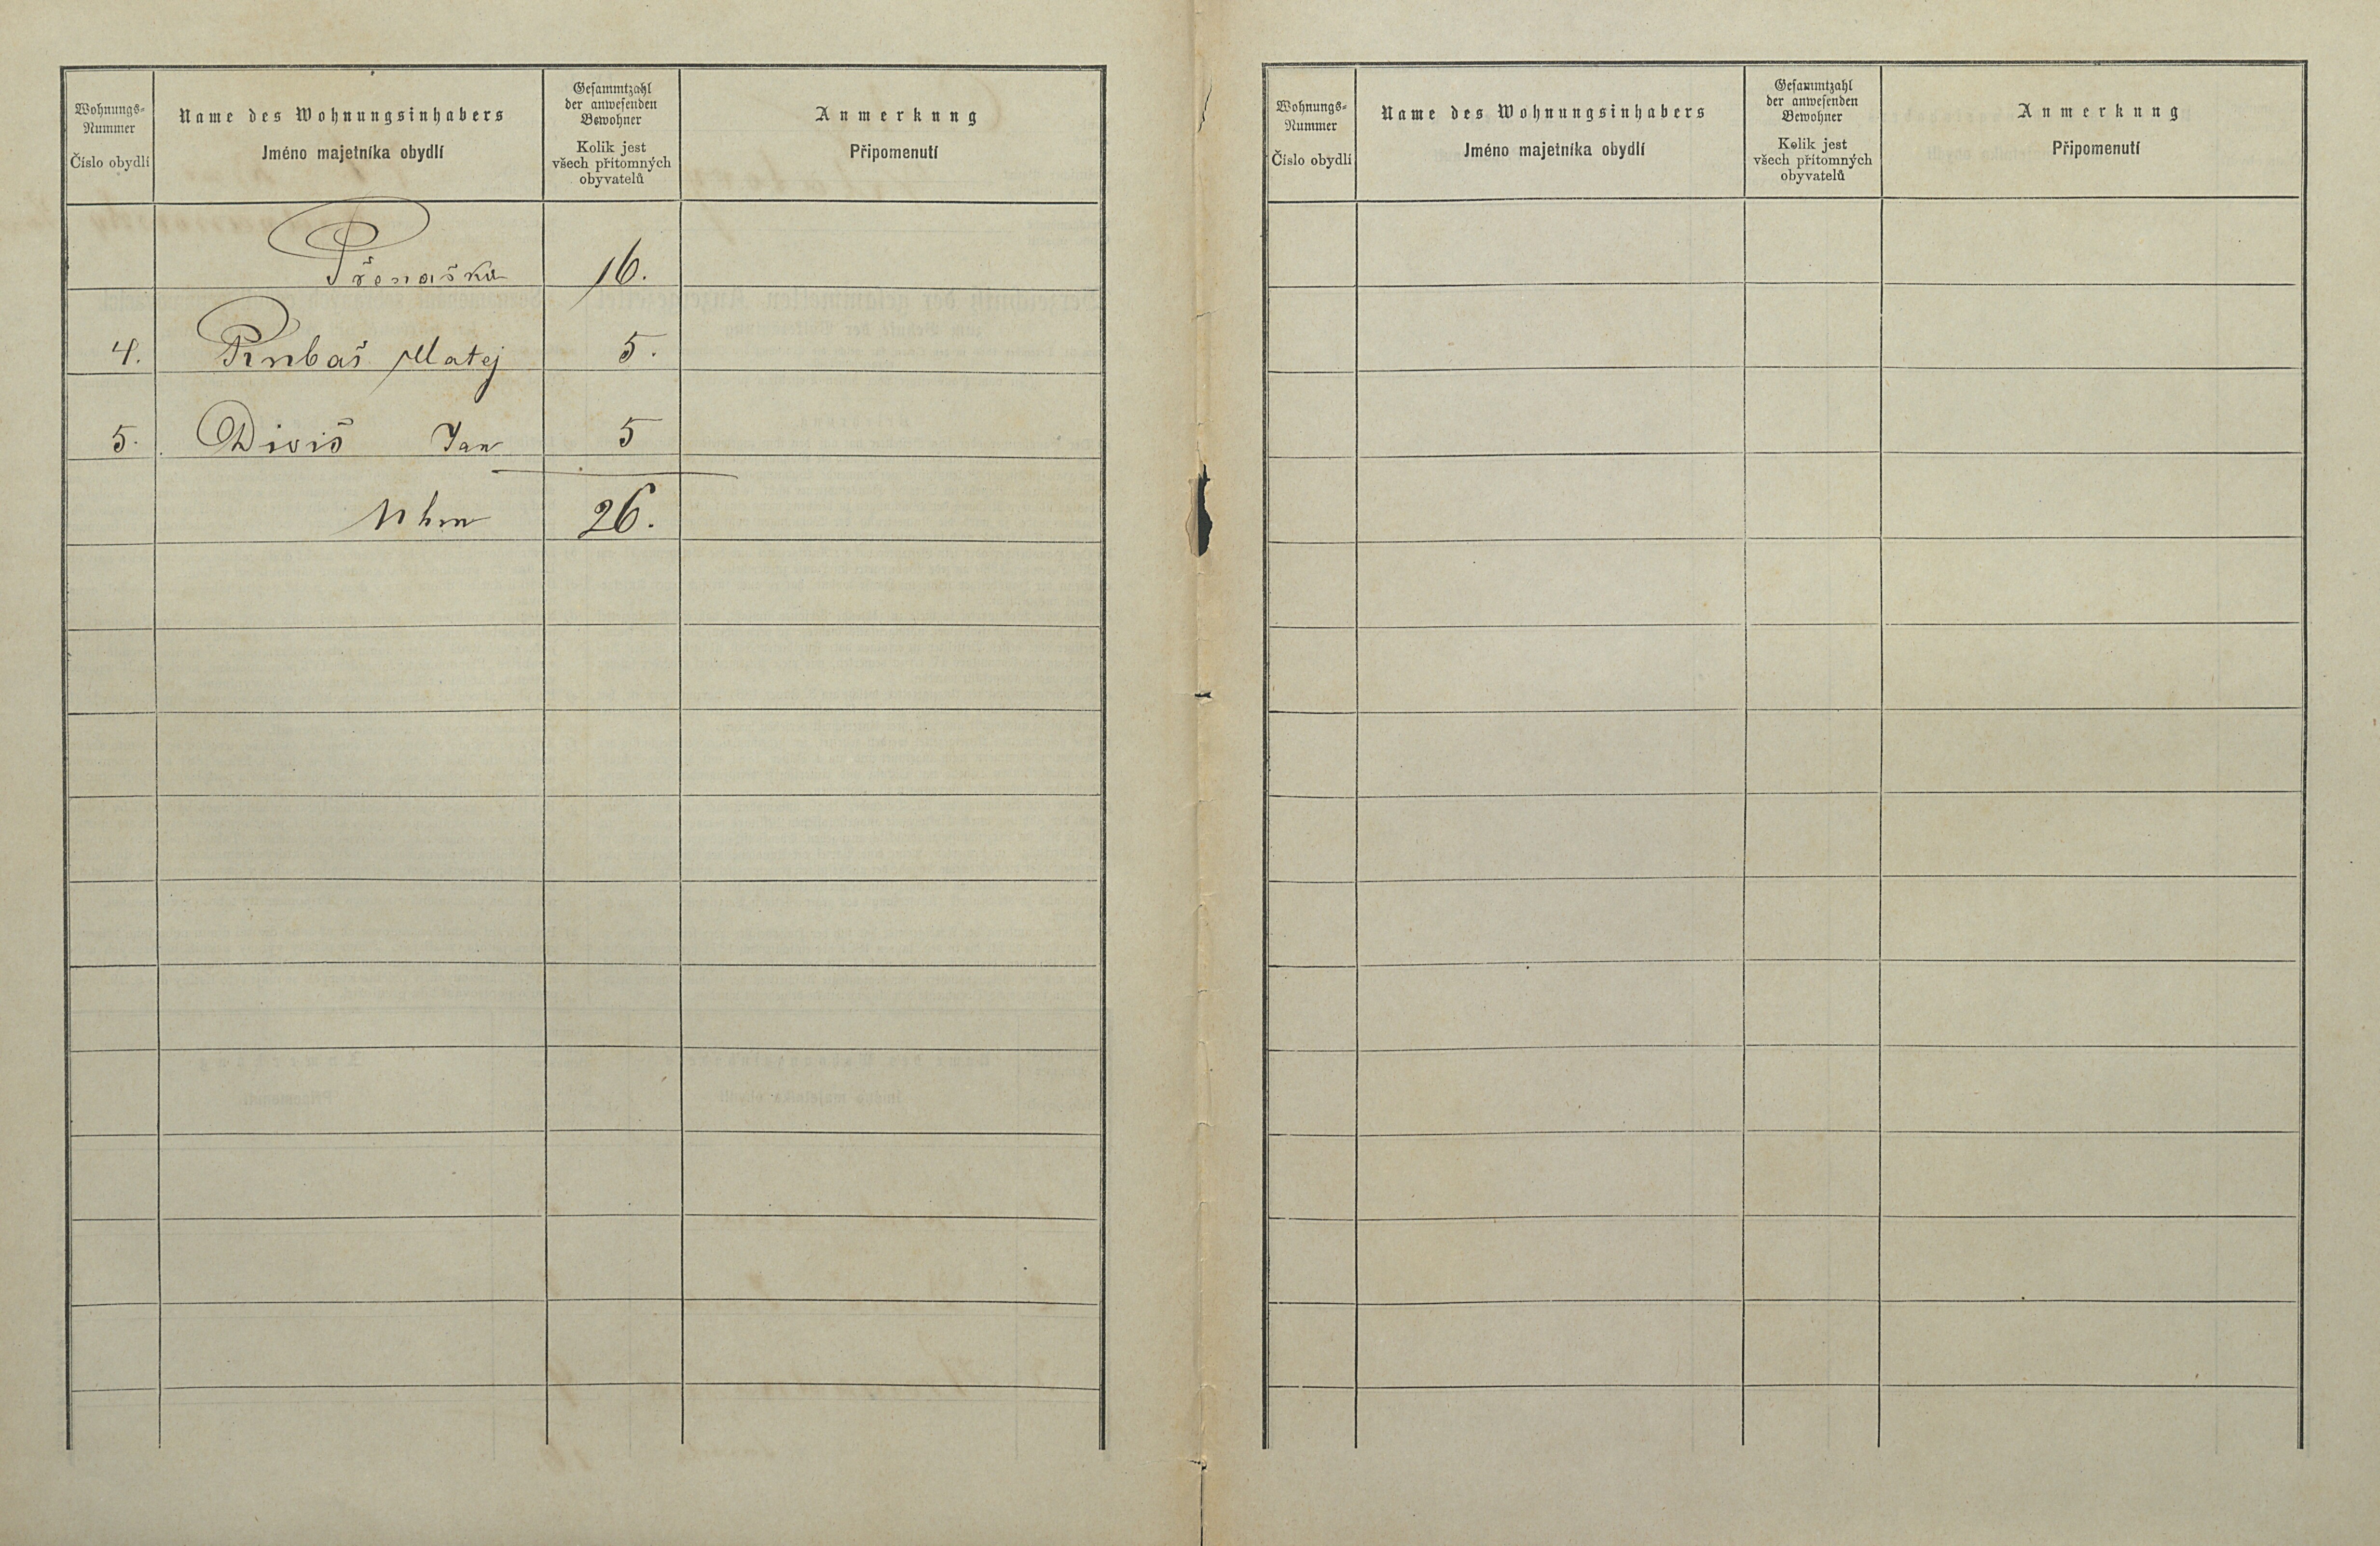 Wohnungs-
Nummer
Číslo obydlí
Name des Wohnungsinhabers
Jméno majetníka obydlí
Gesammtzahl
der anwesenden
Bewohner
Kolik jest
všech přítomných
obyvatelů
Anmerkung
Připomenutí
Přenaška 16.
4. Matej 5.
5. Diviš Jan 5
Uhrn 26.
Wohnungs-
Nummer
Číslo obydlí
Name des Wohnungsinhabers
Jméno majetníka obydlí
Gesammtzahl
der anwesenden
Bewohner
Kolik jest
všech přítomných
obyvatelů
Anmerkung
Připomenutí